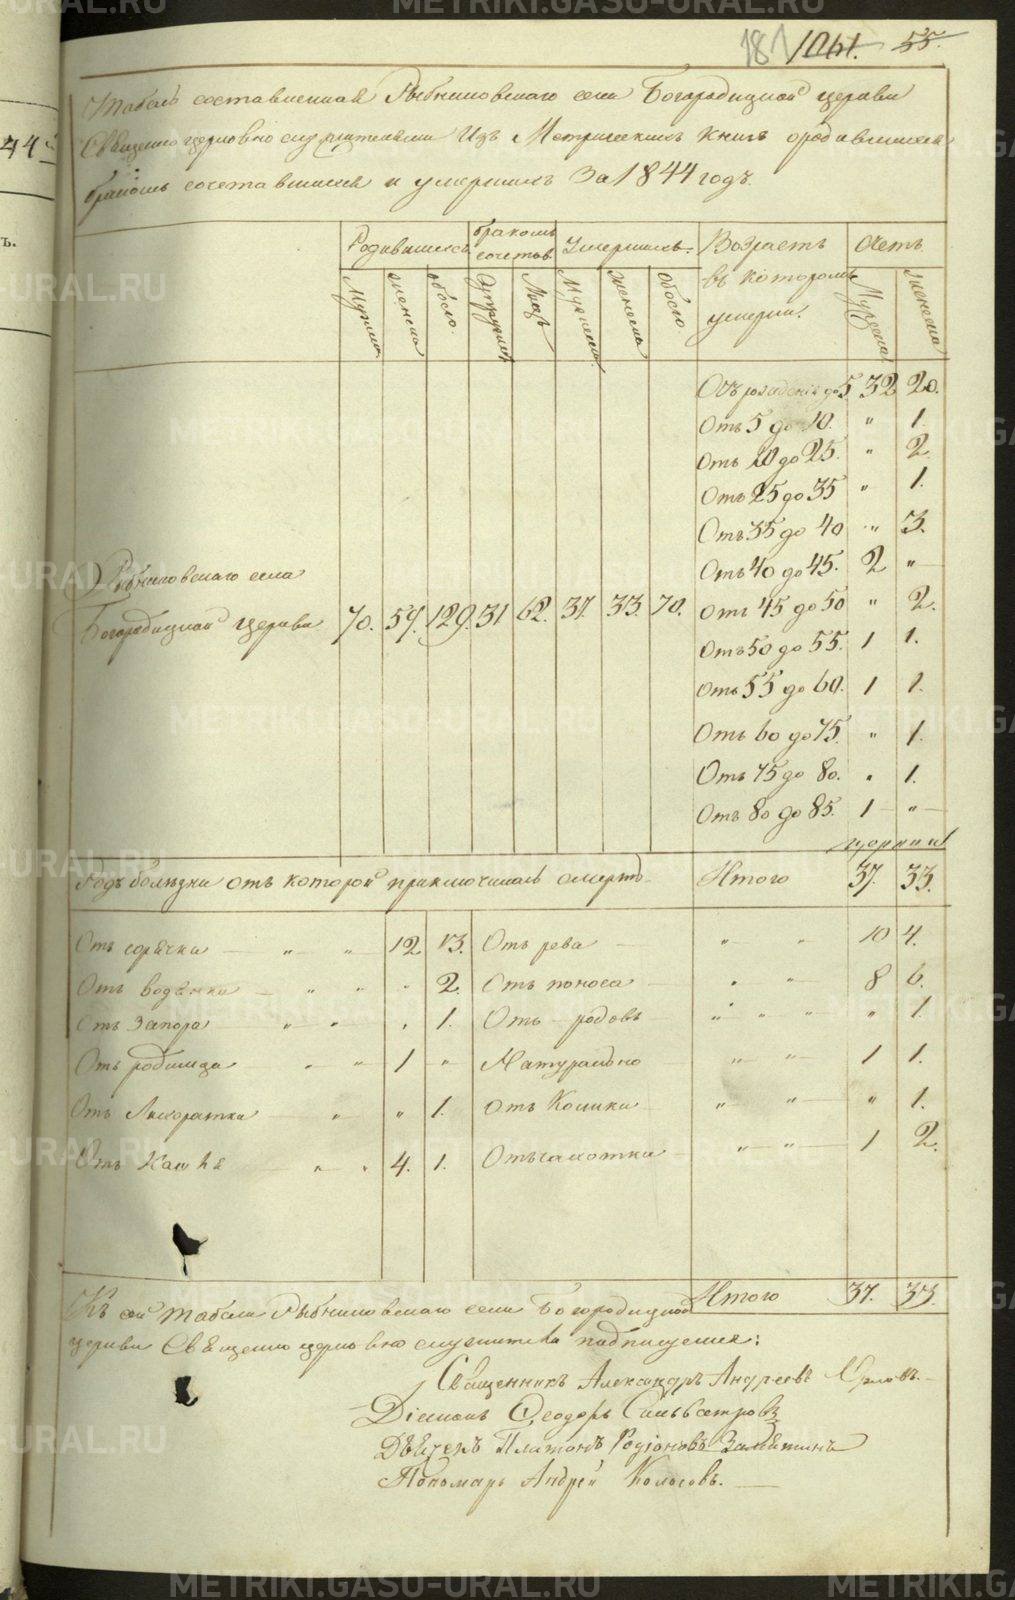 181 1061. 55.
Табель составленная Рыбниковскаго села Богородицкой церкви
Священно церковно служителями Изъ Метрическихъ книгъ ородившихся
бракомъ сочетавшихся и умершихъ За 1844 годъ.
Родившихся бракомъ сочетав Умершихъ. Возрастъ въ которомъ умерли. Счетъ
Мужеска женска обоего. Супружес Лицъ Мужеска женска обоего Мужеска женска
Отъ рождения до 5. 32 20.
Отъ 5 до 10. " 1.
Отъ 20 до 25. " 2.
Отъ 25 до 35 " 1.
Отъ 35 до 40 " 3.
Отъ 40 до 45. 2 "
Рыбниковскаго села
Богородицкой церкви 70. 59. 129. 31 62. 37. 33. 70. Отъ 45 до 50 " 2.
Отъ 50 до 55. 1 1.
Отъ 55 до 60. 1 1.
Отъ 60 до 75. " 1.
Отъ 75 до 80. " 1.
Отъ 80 до 85. 1 "
Родъ болѣзни отъ которой приключилась смерть Итого 37. 33.
Отъ горячки " " 12 13. Отъ рева " " 10 4.
Отъ водянки " " " 2. Отъ поноса " " 8 6.
Отъ Запора " " " 1. Отъ родовъ " " " " 1.
Отъ родимца " " 1 " Натурально " " 1 1.
Отъ Лихоратки " " 1. Отъ Колики " " " 1.
Отъ Кашля " " 4. 1. Отъ чахотки " " 1 2.
Итого 37. 33.
Къ сей табели Рыбниковскаго села Богородицкой
церкви Священно церковно служители подписуемся:
Священникъ Александръ Андреевъ Орловъ.
Діаконъ Ѳеодоръ Сильвестровъ
Дьячекъ Платонъ Родіоновъ Замятинъ
Пономарь Андрей Колосовъ.
44
ъ.
METRIKI.GASU-URAL.RU